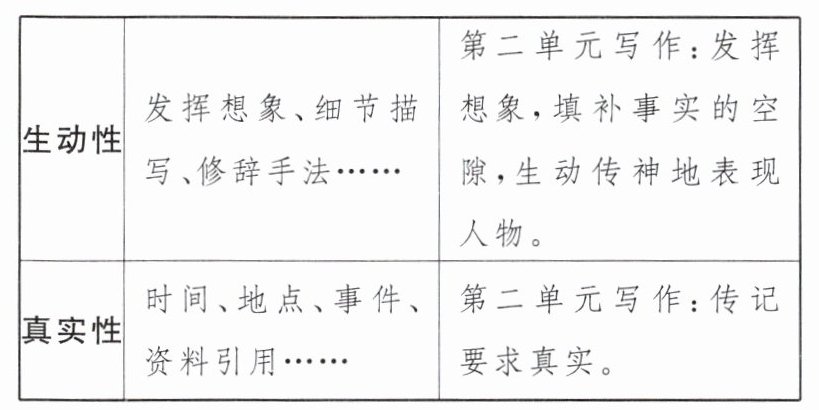 生动性
发挥想象、细节描
写、修辞手法……
第二单元写作:发挥
想象,填补事实的空
隙,生动传神地表现
人物。
真实性
时间、地点、事件、
资料引用……
第二单元写作:传记
要求真实。